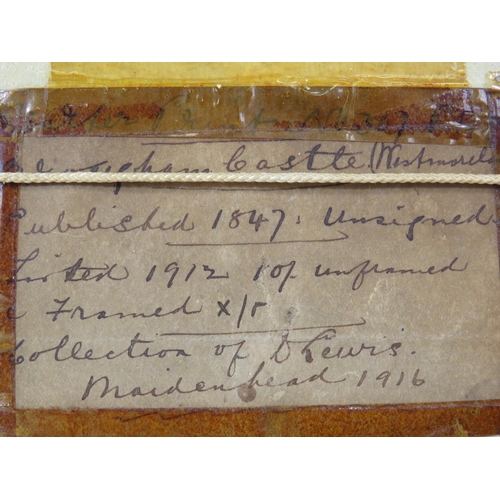 Castle (Westmorel
Published 1847: Unsigned.
Listed 1912 10/ unframed
& Framed x/r
Collection of D Lewis.
Maidenhead 1916